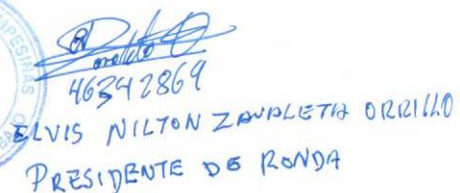 APESINAS
46342869
ELVIS NILTON ZAVALETA ORRILLO
PRESIDENTE DE RONDA